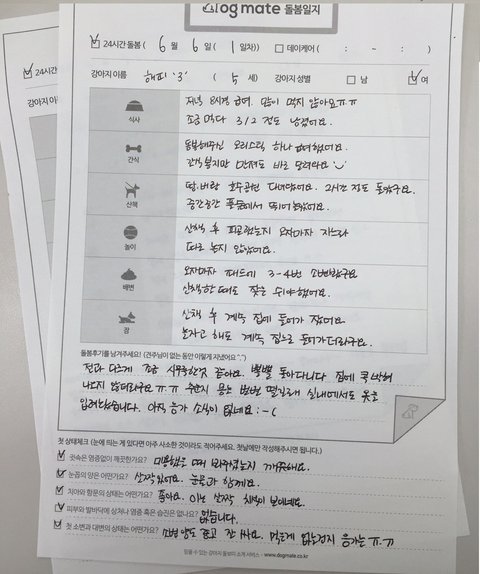 Dogmate 돌봄일지
24시간 돌봄 ( 6 월 6 일 ( 1 일차)) 데이케어 ( : - : )
강아지 이름 해피 '3' ( 5 세) 강아지 성별 남 여
식사
저녁 8시경 급여. 많이 먹지 않아요ㅠㅠ
조금 먹다 3/2 정도 남겼어요.
간식
돌봄해주신 오리스틱 하나 급여했어요.
산책
2시간 정도 돌았구요.
중간중간 풀숲에서 뛰어놀았어요.
놀이
산책 후 피곤했는지 오자마자 자느라
따로 놀지 않았어요.
배변
오자마자 패드에 3-4번 소변봤구요
산책할 때도 잦은 쉬야했어요.
잠
산책 후 계속 집에 들어가 잤어요.
놀자고 해도 계속 집으로 들어가더라구요.
돌봄후기를 남겨주세요! (견주님이 없는 동안 이렇게 지냈어요^.^)
전과 다르게 조금 시무룩한것 같아요. 뽈뽈 돌아다니다 집에 콕 박혀
나오지 않더라구요 ㅠㅠ
입려놨습니다. 아직 응가 소식이 없네요 :-(
첫 상태체크 (눈에 띄는 게 있다면 아주 사소한 것이라도 적어주세요. 첫날에만 작성해주시면 됩니다.)
귓속은 염증없이 깨끗한가요? 깨끗해요.
눈꼽의 양은 어떤가요? 살짝있어요. 눈물과 함께요.
치아와 항문의 상태는 어떤가요? 좋아요. 이는 살짝 치석이 보이네요.
피부와 발바닥에 상처나 염증 혹은 습진은 없나요? 없습니다.
첫 소변과 대변의 상태는 어떤가요? 소변 양도 많고 잘 싸요. 먹은게 없는건지 응가는 ㅠ.ㅠ
믿을 수 있는 강아지 돌보미 소개 서비스 - www.dogmate.co.kr
24시간
강아지 이름